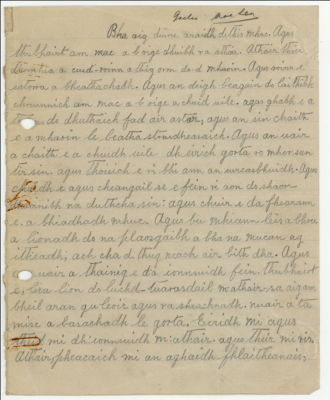 Gaelic
Bha aig duine araidh dithis mhac. Agus
thubhairt am mac a b'oige dhiubh ra athair. Athair thoir
a cuid-roinn a thig orm do d mhaoin. Agus roinn e
eatorra a bheathachadh. Agus an deigh beagain do laithibh
chruinnich am mac a b oige a chuid uile. agus ghabh e a
do dhuthaich fad air astar; agus an sin chaith
e a mhaoin le beatha straidhearaich. Agus an uair
a chaith e a chuid uile dh eirich gorta ro mhor san
tir sin. agus thoisich e ri bhi ann an uireasbhuidh. Agus
chaidh e agus cheangail se e fein ri aon do shaor
na dutcha sin: agus chuir e da fhearann
e. a bhiadhadh mhuc. Agus bu mhiann leis a bhru
a lionadh do na plaosgaibh a bha na mucan ag
itheadh; ach cha d thug neach air bith dha. Agus
uair a thainig e da ionnuidh fein. thubhairt
e, Cia lion do luchd-tuarasdail m'athair-sa aig am
bheil aran gu leoir agus ra sheachnadh. nuair a ta
mise a basachadh le gorta. Eiridh mi agus
mi dh'ionnuidh m'athair. agus their mi ris,
Athair, pheacaich mi an aghaidh fhlaitheanais;